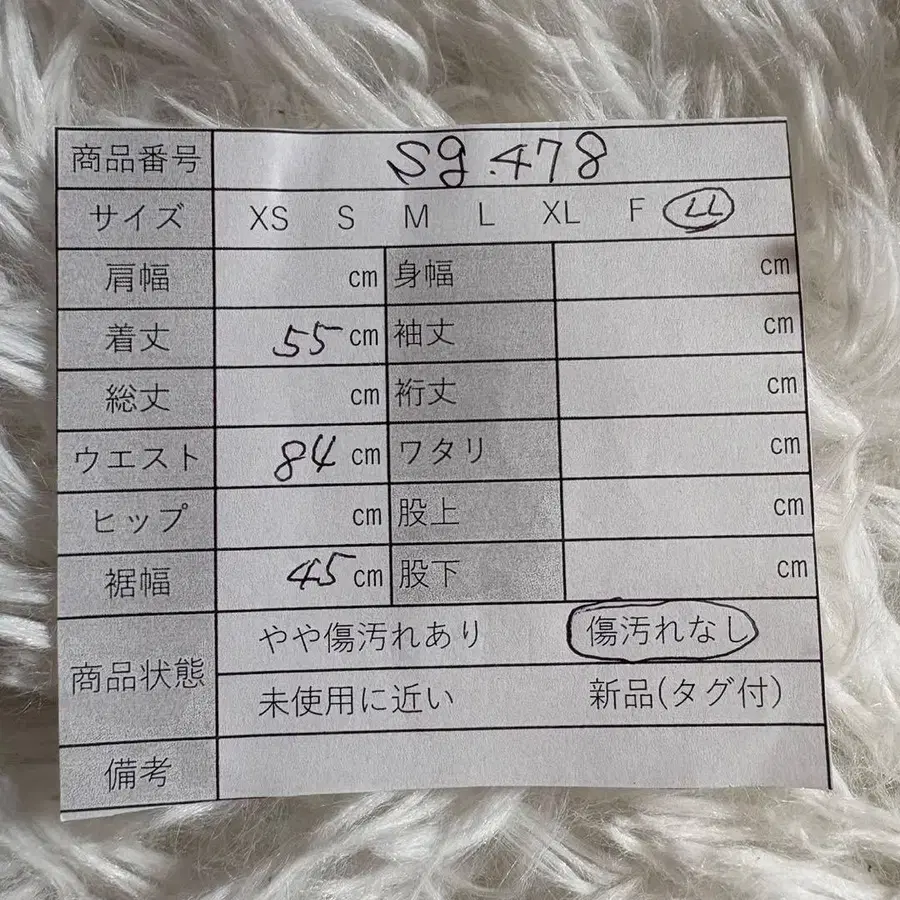 商品番号 Sg.478
サイズ XS S M L XL F LL
肩幅 cm 身幅 cm
着丈 55 cm 袖丈 cm
総丈 cm 裄丈 cm
ウエスト 84 cm ワタリ cm
ヒップ cm 股上 cm
裾幅 45 cm 股下 cm
商品状態 やや傷汚れあり 傷汚れなし
未使用に近い 新品(タグ付)
備考